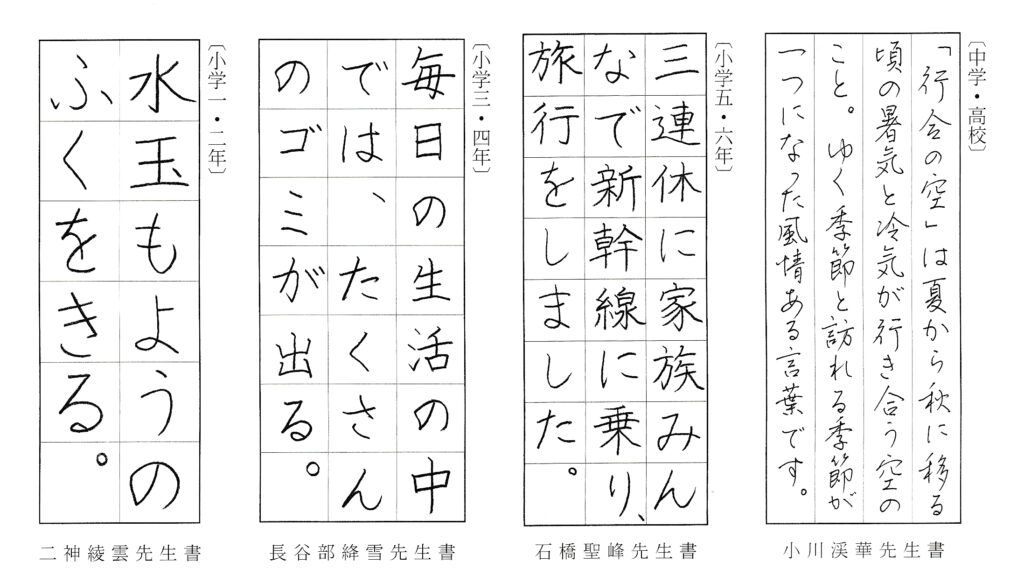 〔中学・高校〕
「行合の空」は夏から秋に移る
頃の暑気と冷気が行き合う空の
こと。ゆく季節と訪れる季節が
一つになった風情ある言葉です。
小川渓華先生書
〔小学五・六年〕
三連休に家族みん
なで新幹線に乗り、
旅行をしました。
石橋聖峰先生書
〔小学三・四年〕
毎日の生活の中
では、たくさん
のゴミが出る。
長谷部絳雪先生書
〔小学一・二年〕
水玉もようの
ふくをきる。
二神綾雲先生書